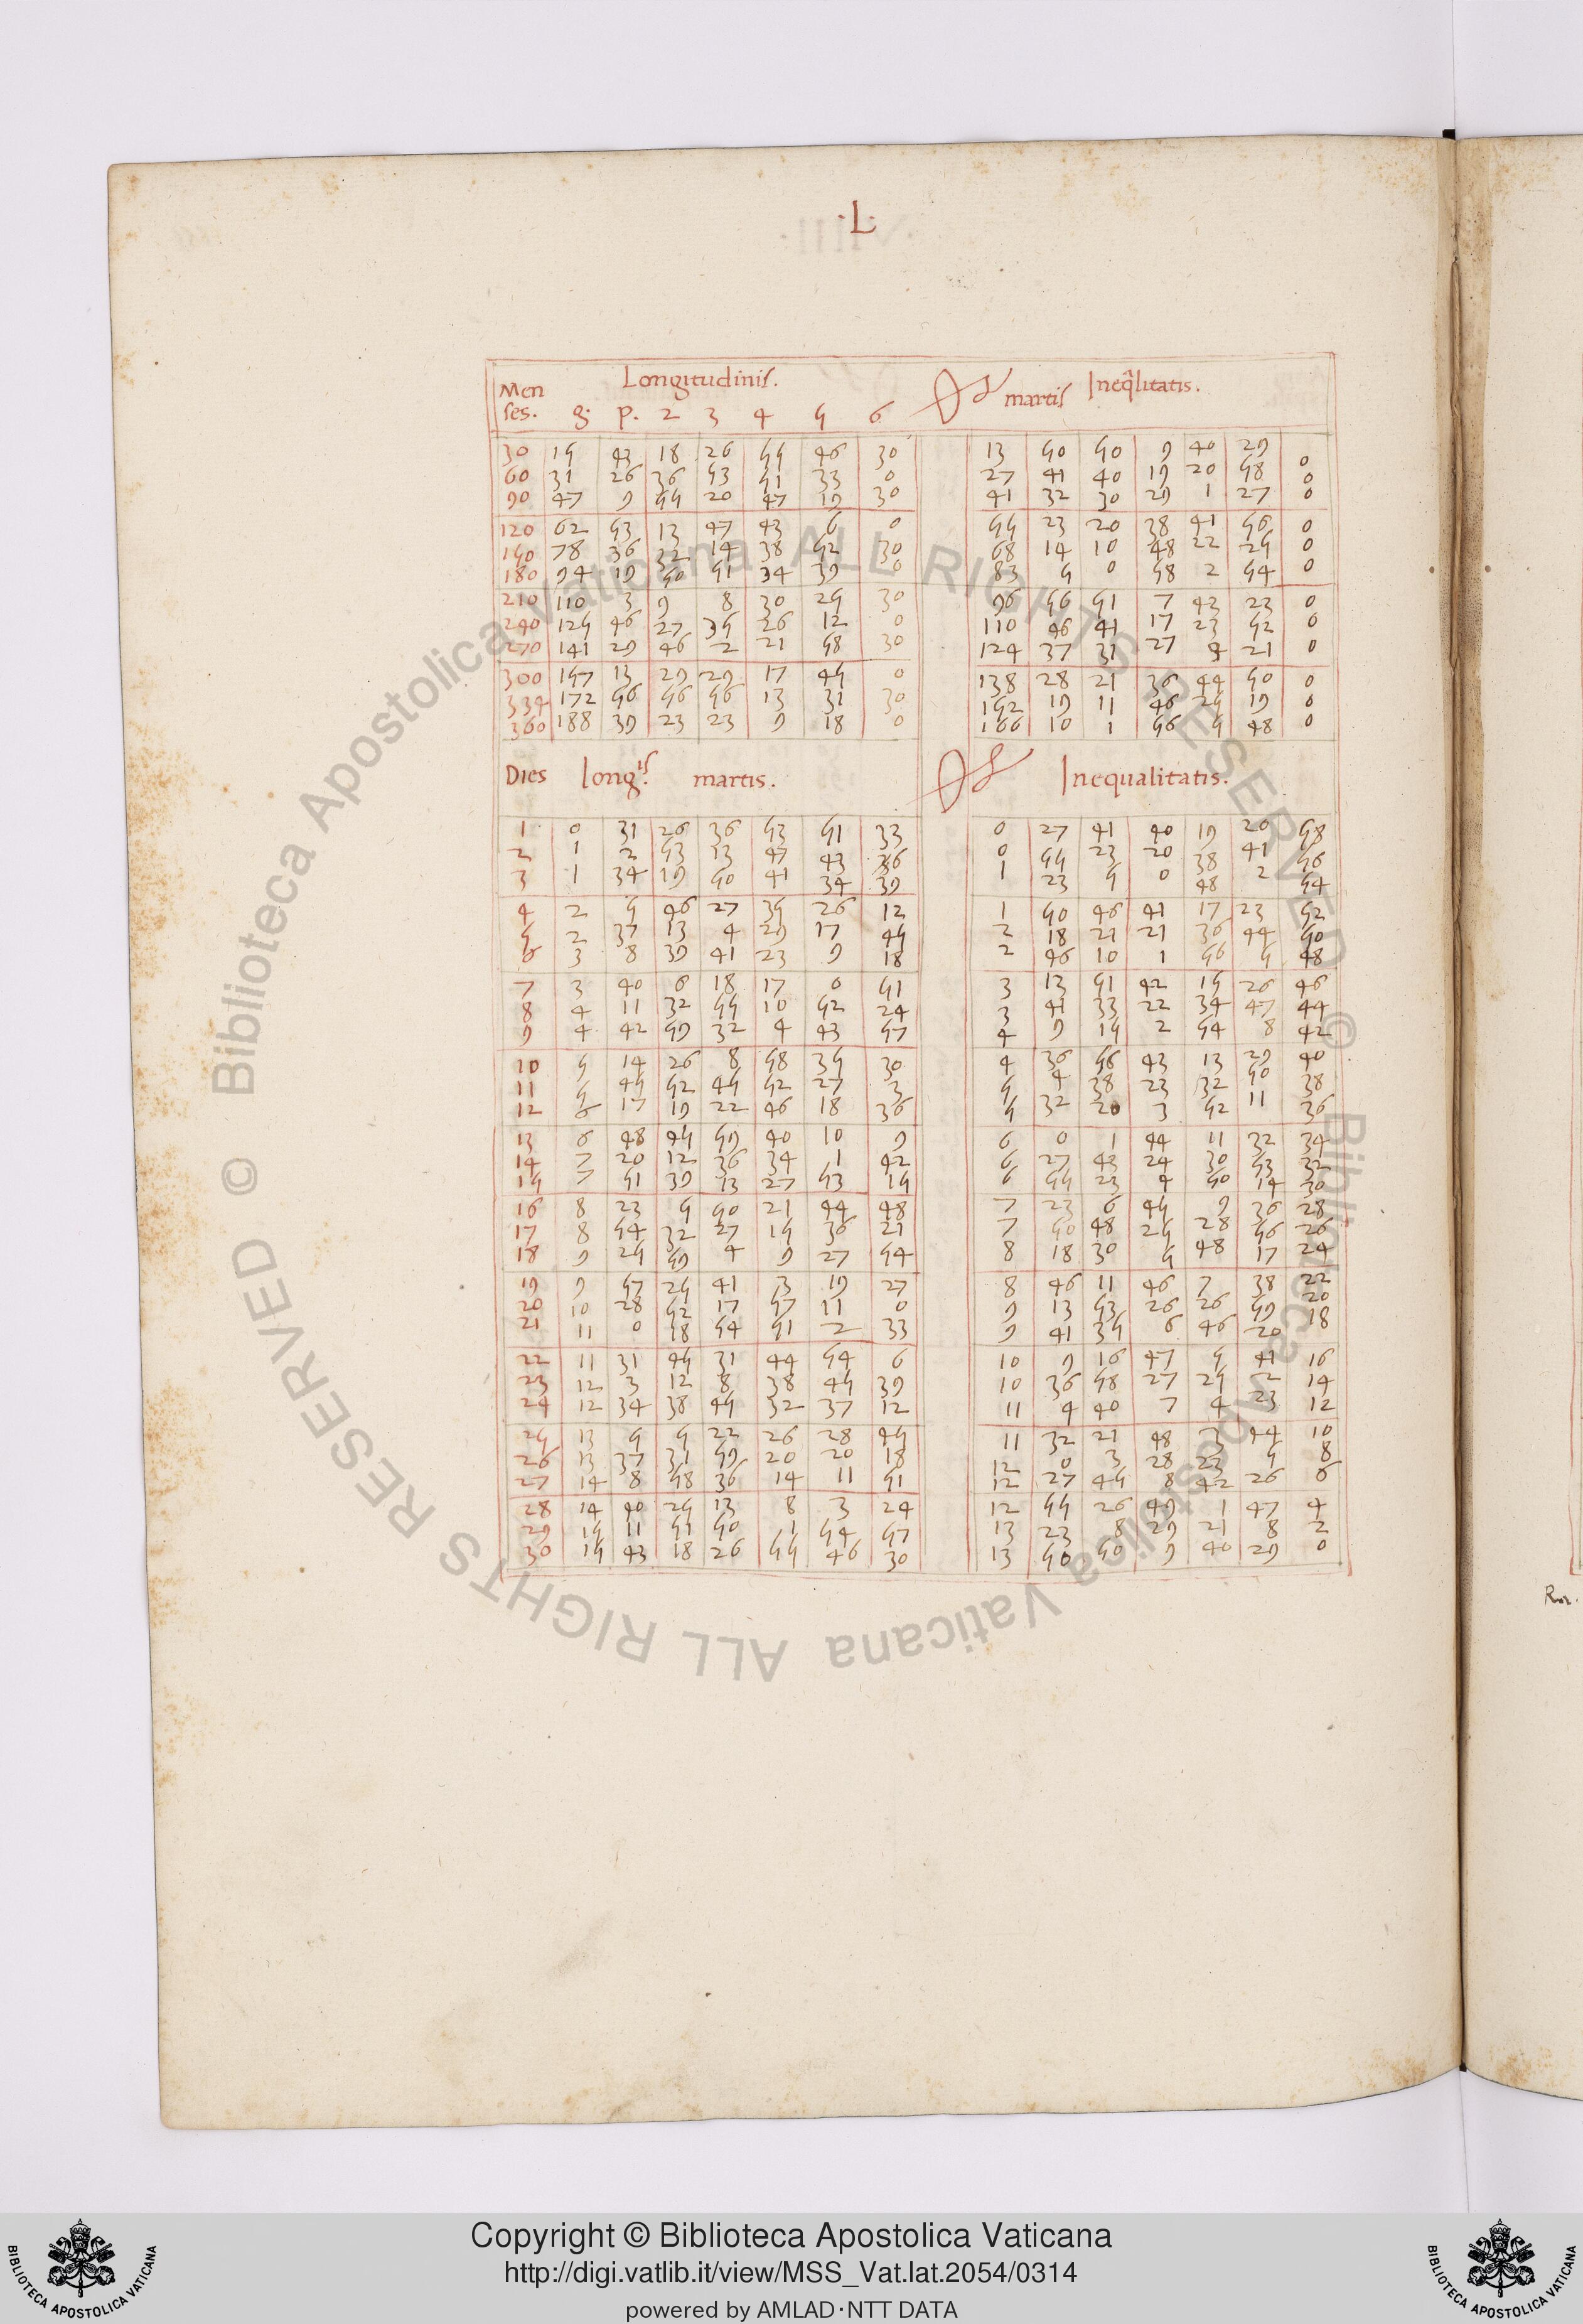 .L.
Longitudinis. martis Ineq̃litatis.
Men
ses. g. p. 2 3 4 5 6
30 15 43 18 26 55 46 30 13 50 50 9 40 29 0
60 31 26 36 53 51 33 0 27 41 40 19 20 58 0
90 47 9 55 20 47 19 30 41 32 30 29 1 27 0
120 62 53 13 47 43 6 0 55 23 20 38 41 56 0
150 78 36 32 14 38 52 30 68 14 10 48 22 25 0
180 94 19 50 51 34 39 0 83 5 0 58 2 54 0
210 110 3 9 8 30 25 30 96 56 51 7 43 23 0
240 125 46 27 35 26 12 0 110 46 41 17 23 52 0
270 141 29 46 2 21 58 30 124 37 31 27 4 21 0
300 157 13 29 29 17 45 0 138 28 21 36 44 50 0
334 172 56 56 56 13 31 30 152 19 11 46 25 19 0
360 188 39 23 23 9 18 0 166 10 1 56 5 48 0
Dies longis. martis. Inequalitatis.
1 0 31 26 36 53 51 33 0 27 41 40 19 20 58
2 1 2 53 13 47 43 36 0 55 23 20 38 41 56
3 1 34 19 50 41 34 39 1 23 5 0 48 2 54
4 2 5 46 27 35 26 12 1 50 46 41 17 23 52
5 2 37 13 4 29 17 45 2 18 21 21 36 44 50
6 3 8 39 41 23 9 18 2 46 10 1 56 5 48
7 3 40 6 18 17 0 51 3 13 51 42 15 26 46
8 4 11 32 55 10 52 24 3 41 33 22 34 47 44
9 4 42 59 32 4 43 57 4 9 15 2 54 8 42
10 5 14 26 8 58 35 30 4 36 56 43 13 29 40
11 5 45 52 45 52 27 3 5 4 38 23 32 50 38
12 6 17 19 22 46 18 36 5 32 20 3 52 11 36
13 6 48 45 59 40 10 9 6 0 1 44 11 32 34
14 7 20 12 36 34 1 42 6 27 43 24 30 53 32
15 7 51 39 13 27 53 15 6 55 23 4 50 14 30
16 8 23 5 50 21 44 48 7 23 6 45 9 36 28
17 8 54 32 27 15 36 21 7 50 48 25 28 56 26
18 9 25 59 4 9 27 54 8 18 30 5 48 17 24
19 9 57 25 41 3 19 27 8 46 11 46 7 38 22
20 10 28 52 17 57 11 0 9 13 53 26 26 59 20
21 11 0 18 54 51 2 33 9 41 35 6 46 20 18
22 11 31 45 31 44 54 6 10 9 16 47 5 41 16
23 12 3 12 8 38 45 39 10 36 58 27 25 2 14
24 12 34 38 45 32 37 12 11 4 40 7 4 23 12
25 13 5 5 22 26 28 45 11 32 21 48 3 44 10
26 13 37 31 59 20 20 18 12 0 3 28 23 5 8
27 14 8 58 36 14 11 51 12 27 45 8 42 26 6
28 14 40 25 13 8 3 24 12 55 26 49 1 47 4
29 15 11 51 50 1 54 57 13 23 8 29 21 8 2
30 15 43 18 26 55 46 30 13 50 50 9 40 29 0
© Biblioteca Apostolica Vaticana ALL RIGHTS RESERVED © Biblioteca Apostolica Vaticana ALL RIGHTS RESERVED
Copyright © Biblioteca Apostolica Vaticana
http://digi.vatlib.it/view/MSS_Vat.lat.2054/0314
powered by AMLAD·NTT DATA
BIBLIOTECA APOSTOLICA VATICANA
BIBLIOTECA APOSTOLICA VATICANA